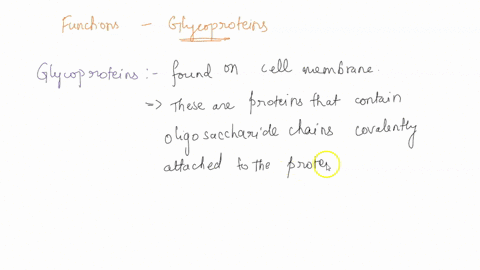 Functions - Glycoproteins
Glycoproteins :- found on cell membrane.
=> These are proteins that contain
oligosaccharide chains covalently
attached to the protei